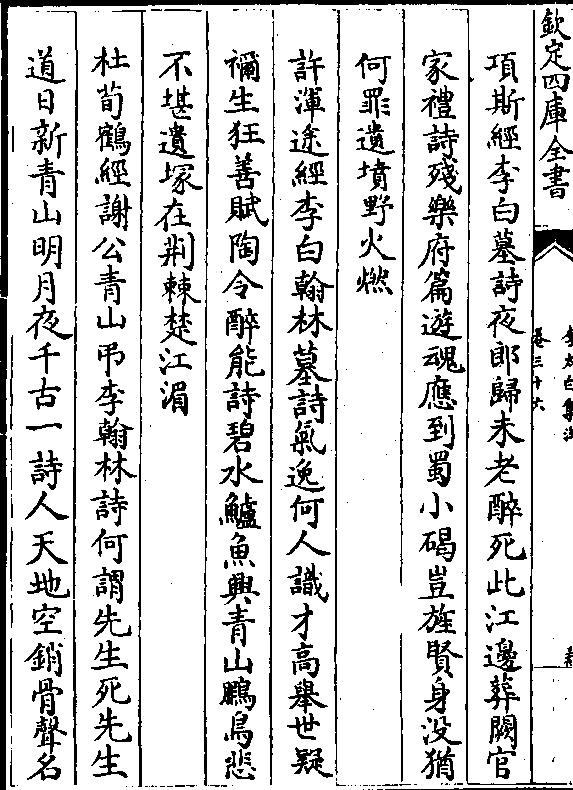 欽定四庫全書
卷三十六
項斯經李白墓詩夜郎歸未老醉死此江邊葬闕官
家禮詩殘樂府篇遊魂應到蜀小碣豈旌賢身没猶
何罪遺墳野火燃
許渾途經李白翰林墓詩氣逸何人識才高舉世疑
禰生狂善賦陶令醉能詩碧水鱸魚興青山鵩鳥悲
不堪遺塚在荆棘楚江湄
杜荀鶴經謝公青山弔李翰林詩何謂先生死先生
道日新青山明月夜千古一詩人天地空銷骨聲名